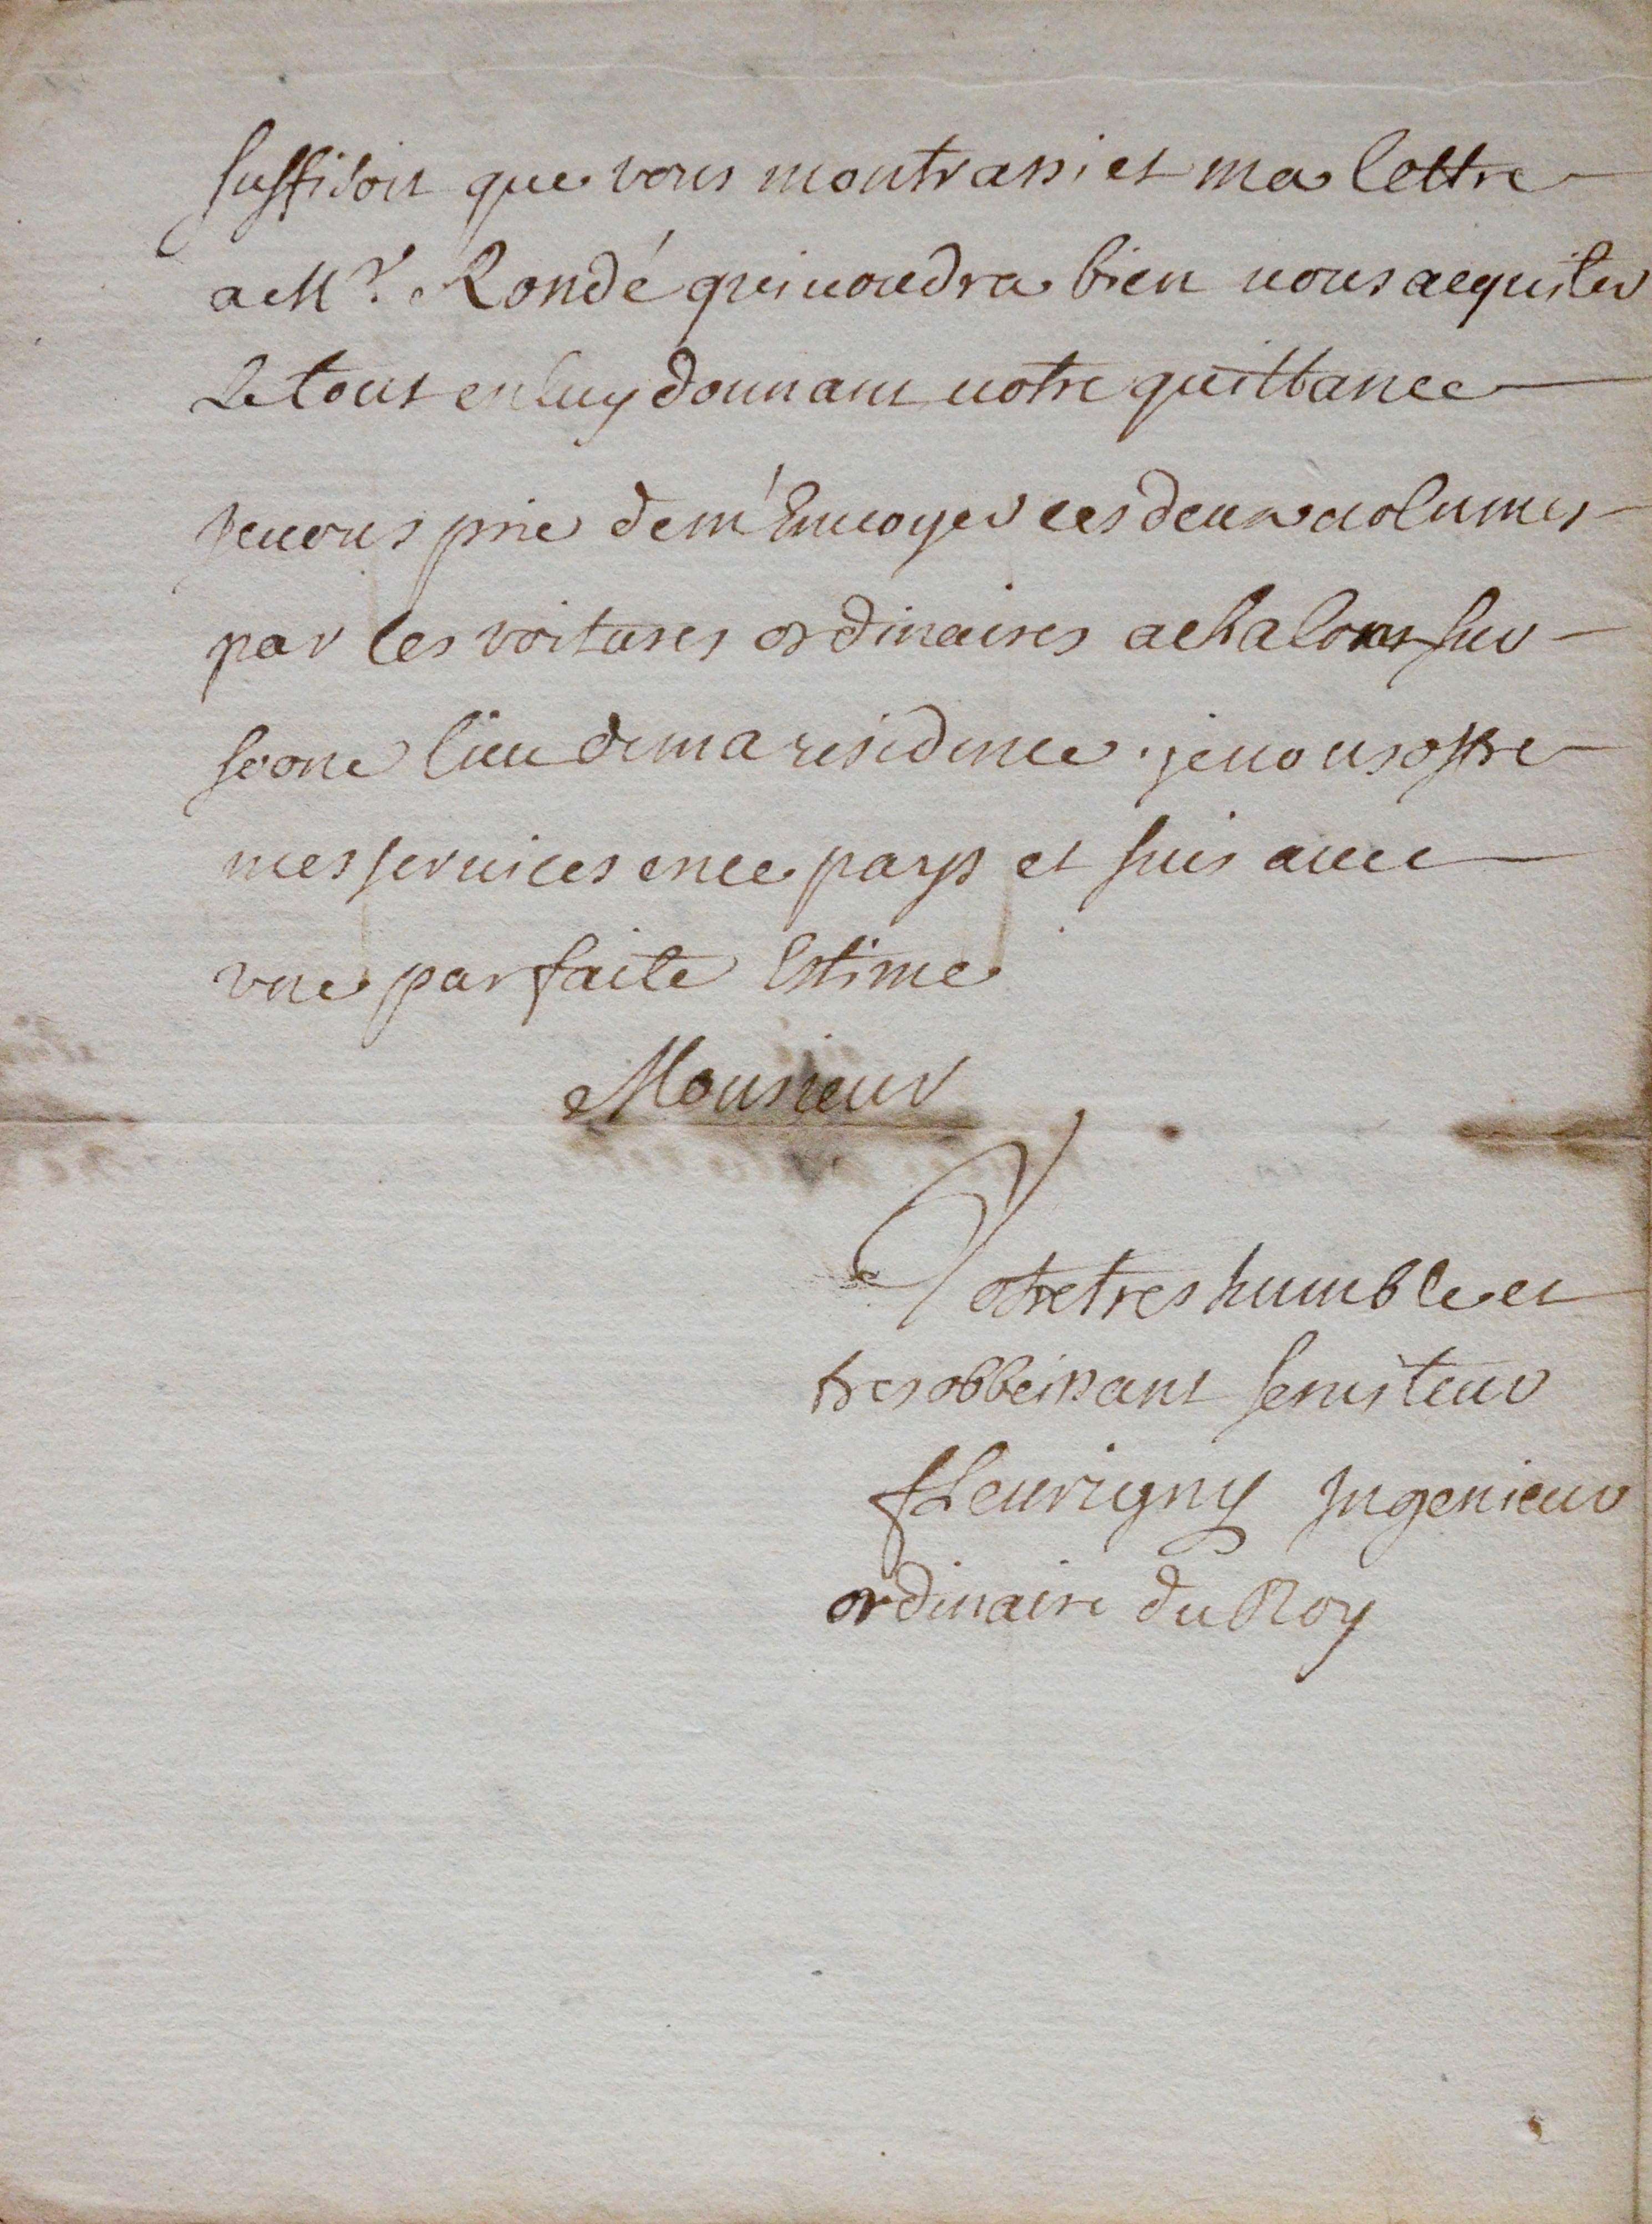 suffisoit que vous montrassiet ma lettre
a Mr. Rondé qui voudra bien vous acquiter
Le tout en luy donnant votre quittance
Je vous prie de m'Envoyer ces deux volumes
par les voitures ordinaires a chalons sur
soone lieu de ma residence. je vous offre
mes services en ce pays et suis avec
vne parfaite Estime
Monsieur
Votre tres humble et
tres obbeissant serviteur
fleurigny Ingenieur
ordinaire du Roy